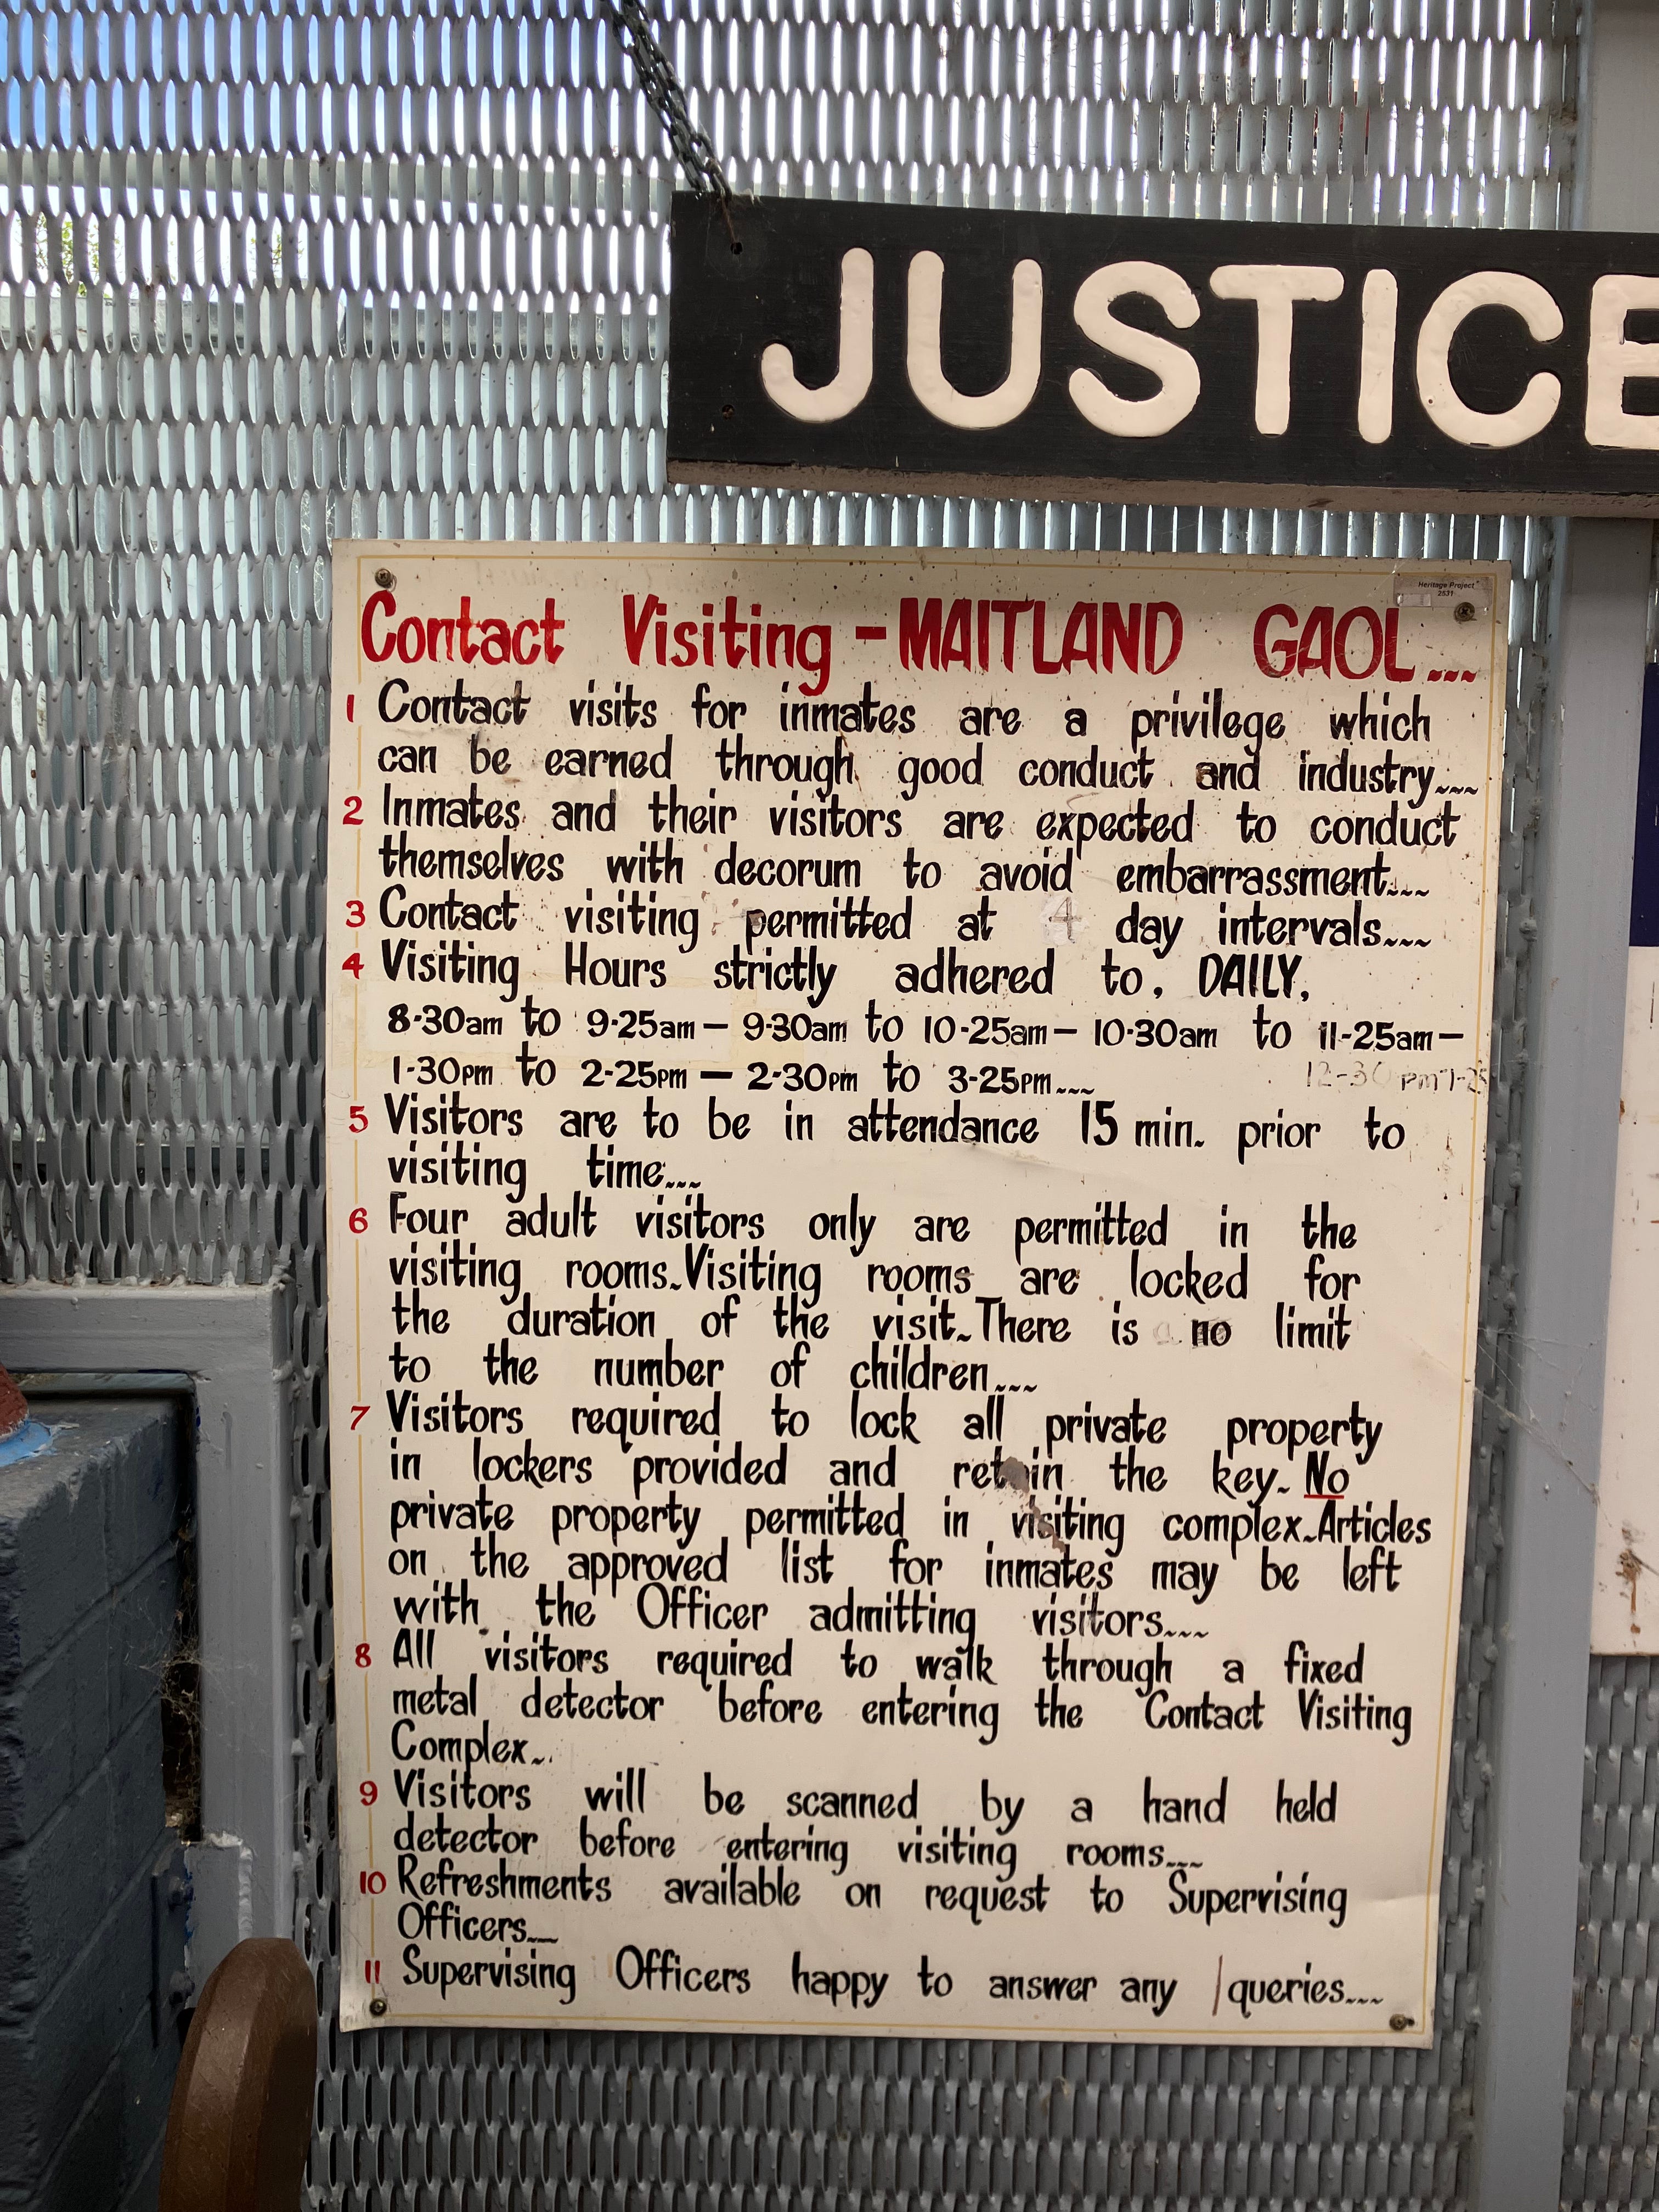 JUSTICE
Heritage Project
2531
Contact Visiting - MAITLAND GAOL...
1 Contact visits for inmates are a privilege which
can be earned through good conduct and industry...
2 Inmates and their visitors are expected to conduct
themselves with decorum to avoid embarrassment...
3 Contact visiting permitted at 4 day intervals...
4 Visiting Hours strictly adhered to. DAILY,
8-30am to 9-25am - 9-30am to 10-25am - 10-30am to 11-25am -
1-30pm to 2-25pm - 2-30pm to 3-25pm... 12-30 pm 1-25
5 Visitors are to be in attendance 15 min. prior to
visiting time...
6 Four adult visitors only are permitted in the
visiting rooms. Visiting rooms are locked for
the duration of the visit. There is no limit
to the number of children...
7 Visitors required to lock all private property
in lockers provided and retain the key. No
private property permitted in visiting complex. Articles
on the approved list for inmates may be left
with the Officer admitting visitors...
8 All visitors required to walk through a fixed
metal detector before entering the Contact Visiting
Complex..
9 Visitors will be scanned by a hand held
detector before entering visiting rooms...
10 Refreshments available on request to Supervising
Officers...
11 Supervising Officers happy to answer any queries...